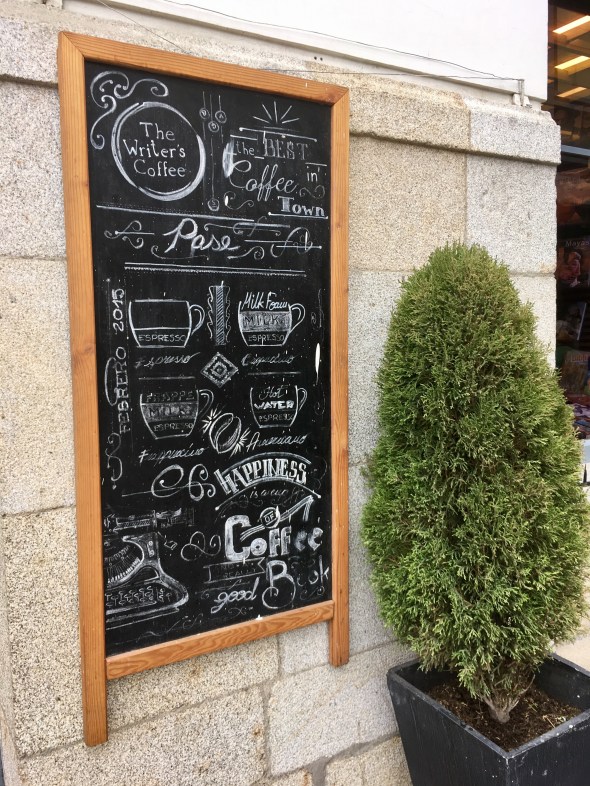 The
Writer's
Coffee
the BEST
Coffee in
Town
Pase
FEBRERO 2015
ESPRESSO
Espresso
Milk Foam
MILK
ESPRESSO
Capuchino
FRAPPE
MILK
ESPRESSO
Frappuccino
Hot
WATER
ESPRESSO
Americano
HAPPINESS
is a cup
OF
Coffee
good Book